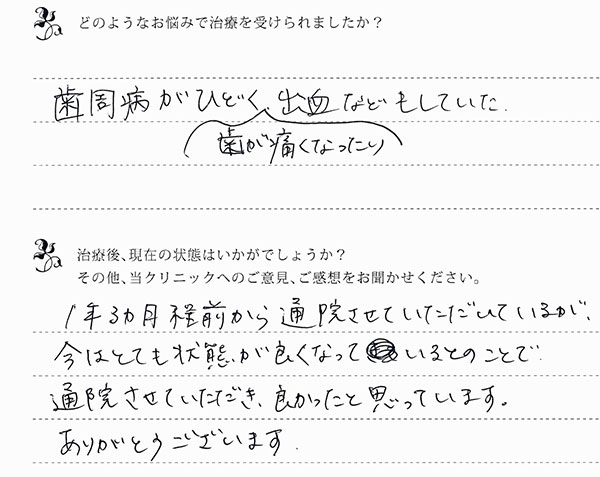 どのようなお悩みで治療を受けられましたか？
歯周病がひどく、出血などもしていた。
歯が痛くなったり
治療後、現在の状態はいかがでしょうか？
その他、当クリニックへのご意見、ご感想をお聞かせください。
1年3カ月程前から通院させていただいているが、
今はとても状態が良くなっているとのことで
通院させていただき、良かったと思っています。
ありがとうございます。